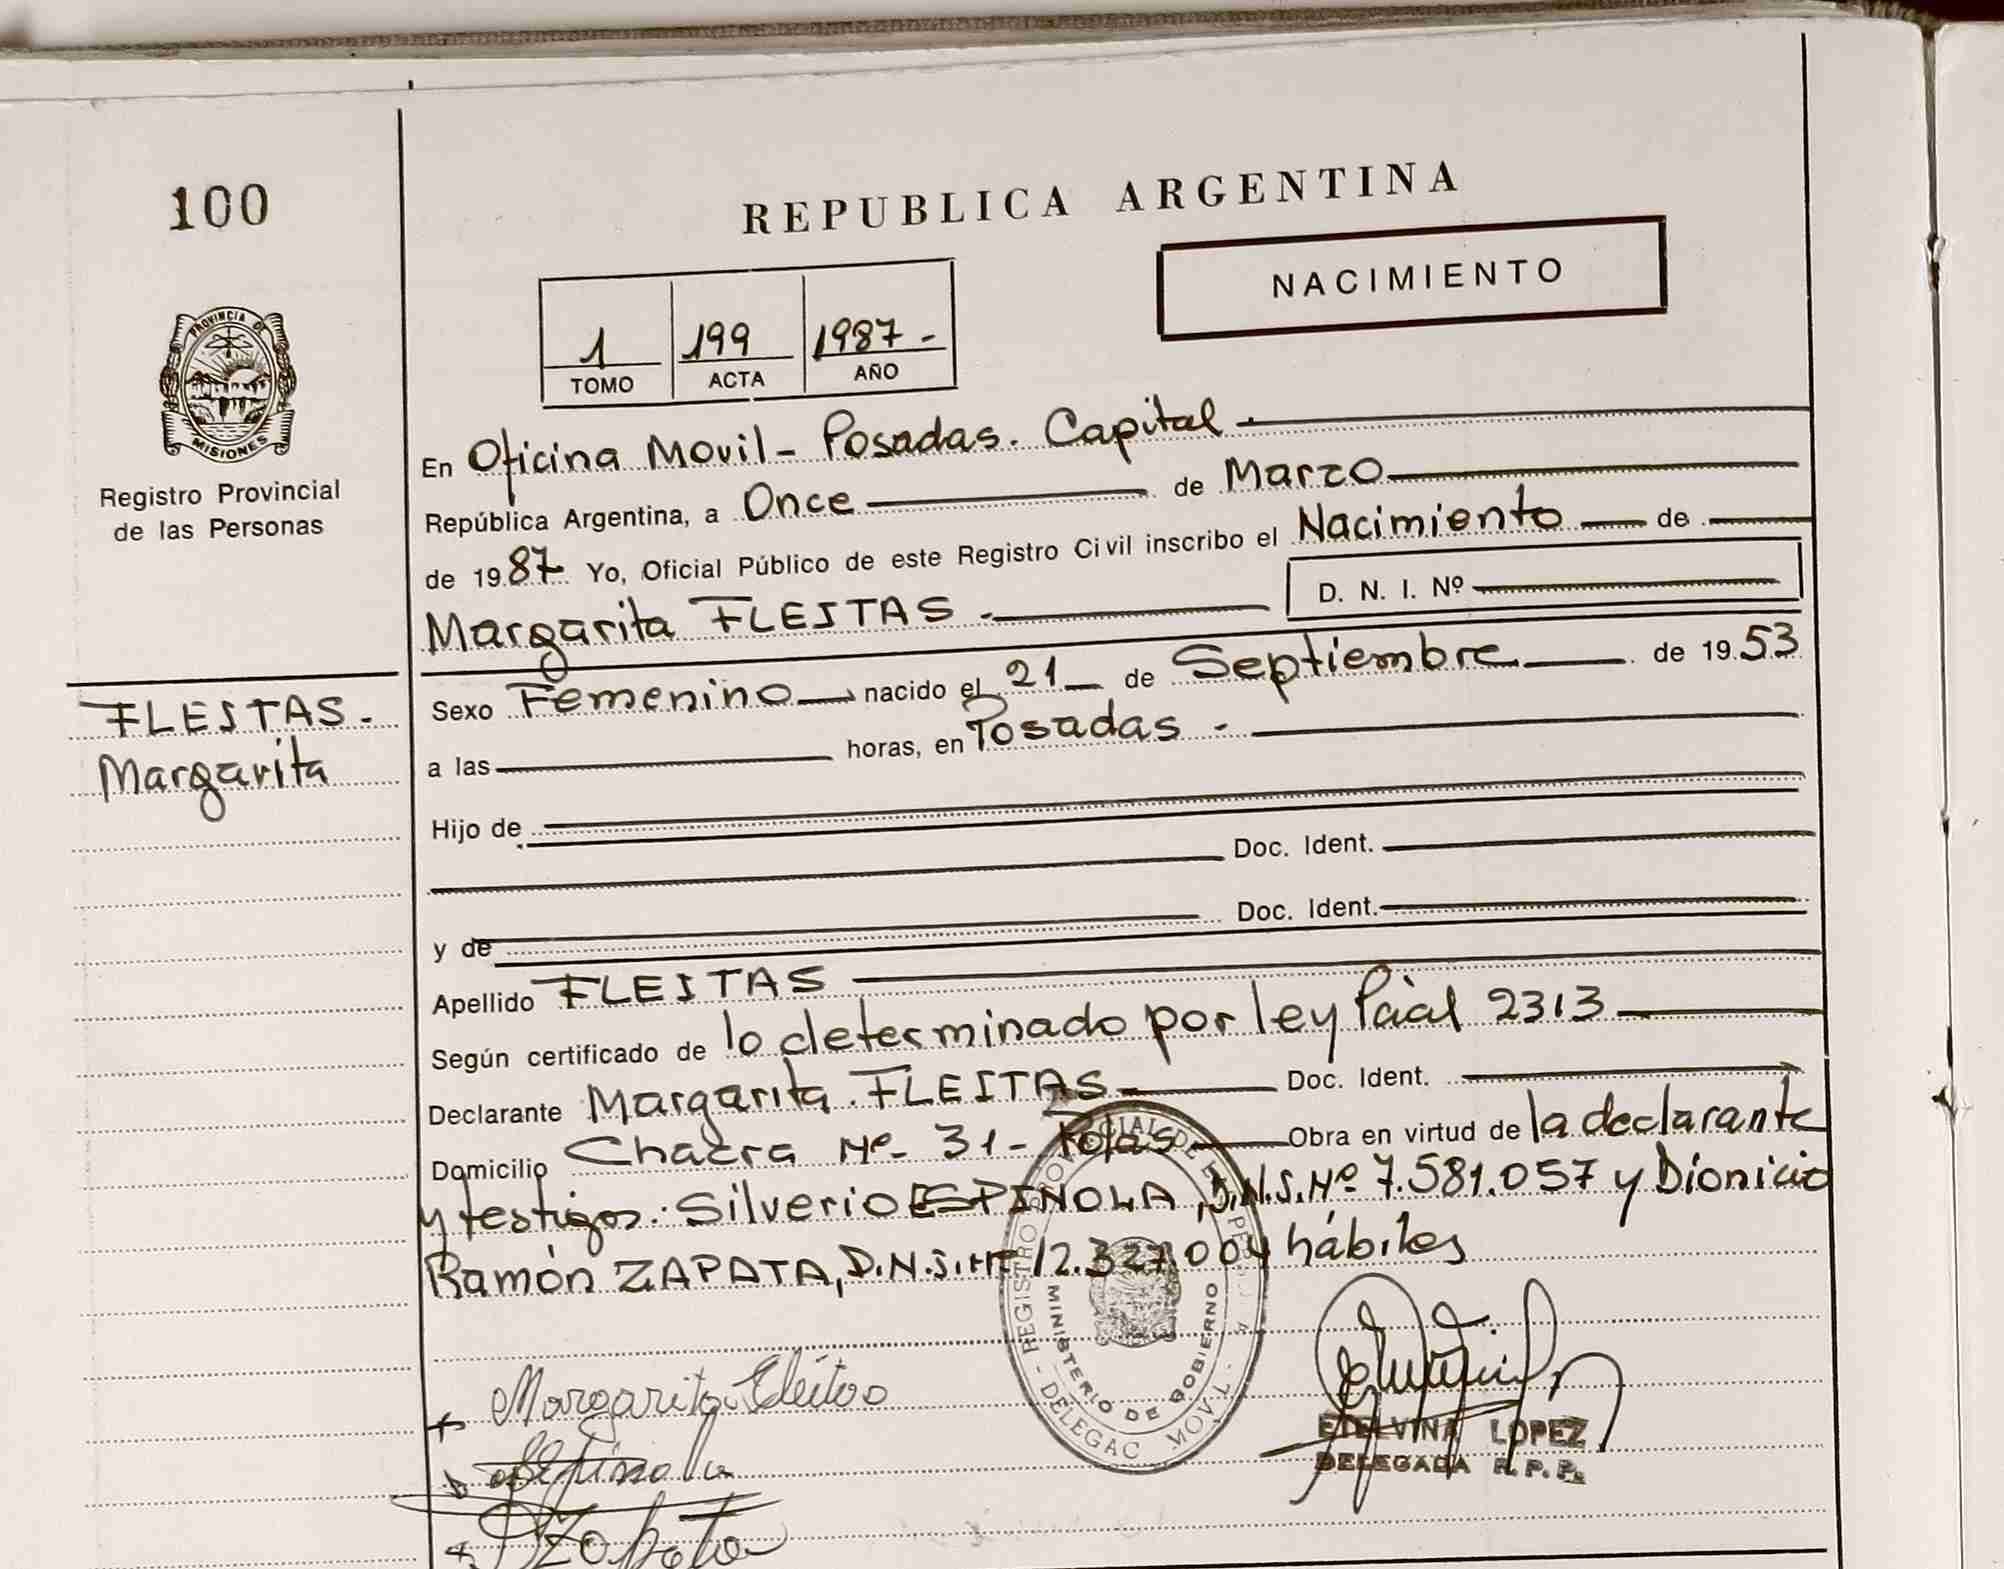 100
REPUBLICA ARGENTINA
NACIMIENTO
1 199 1987 -
TOMO ACTA AÑO
PROVINCIA DE
MISIONES
Registro Provincial
de las Personas
En Oficina Movil - Posadas. Capital -
República Argentina, a Once de Marzo
de 1987 Yo, Oficial Público de este Registro Civil inscribo el Nacimiento de
Margarita FLEITAS - D. N. I. Nº
FLEITAS -
Margarita
Sexo Femenino nacido el 21 de Septiembre de 1953
a las horas, en Posadas -
Hijo de
Doc. Ident.
y de Doc. Ident.
Apellido FLEITAS
Según certificado de lo determinado por ley Pcial 2313
Declarante Margarita FLEITAS Doc. Ident.
Domicilio Chacra Nº 31 - Rojas Obra en virtud de la declarante
y testigos: Silverio ESPINOLA, D.N.I. Nº 7.581.057 y Dionicio
Ramón ZAPATA, D.N.I. Nº 12.327.004 hábiles
REGISTRO PROVINCIAL DE
MINISTERIO DE GOBIERNO
DELEGAC. MOVIL
Margarita Fleitas
Espinola
Zapata
ETELVINA LOPEZ
DELEGADA R. P. P.